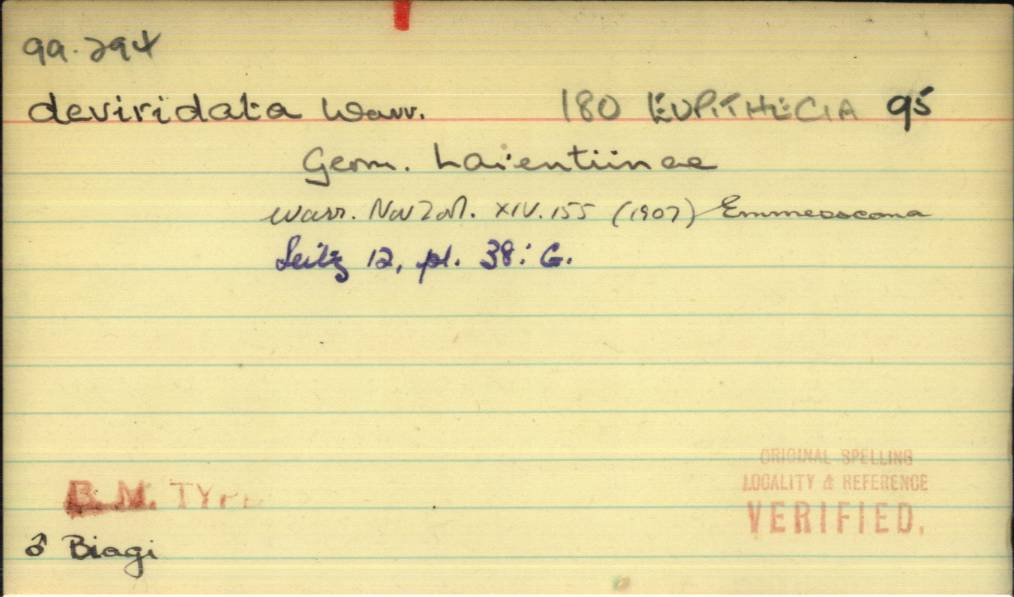 99.294
deviridata Warr. 180 EUPITHECIA 95
Geom. Larentiinae
Warr. Nov Zool. XIV. 155 (1907) Emmesocoma
Seitz 12, pl. 38: G.
ORIGINAL SPELLING
LOCALITY & REFERENCE
VERIFIED.
B. M. TYPE
♂ Biagi